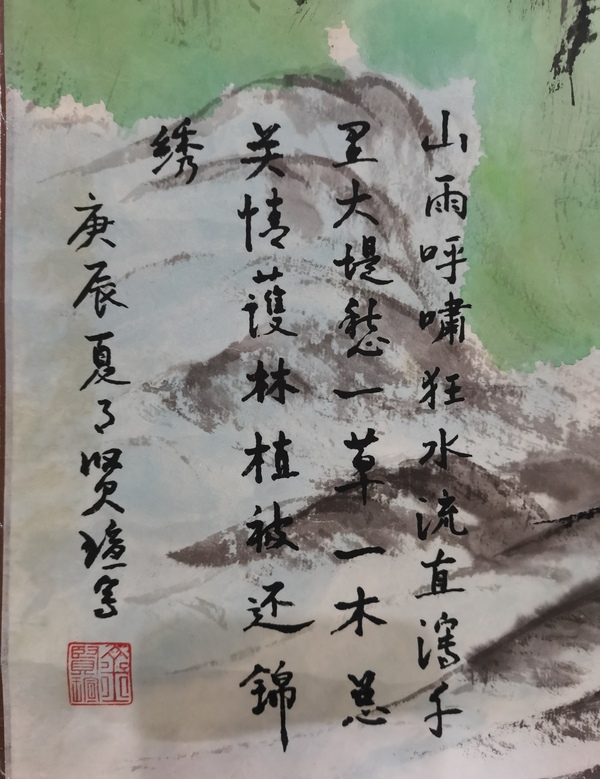 山雨呼嘯狂水流直瀉千
里大堤愁一草一木总
关情護林植被还錦
绣
庚辰夏月贤写